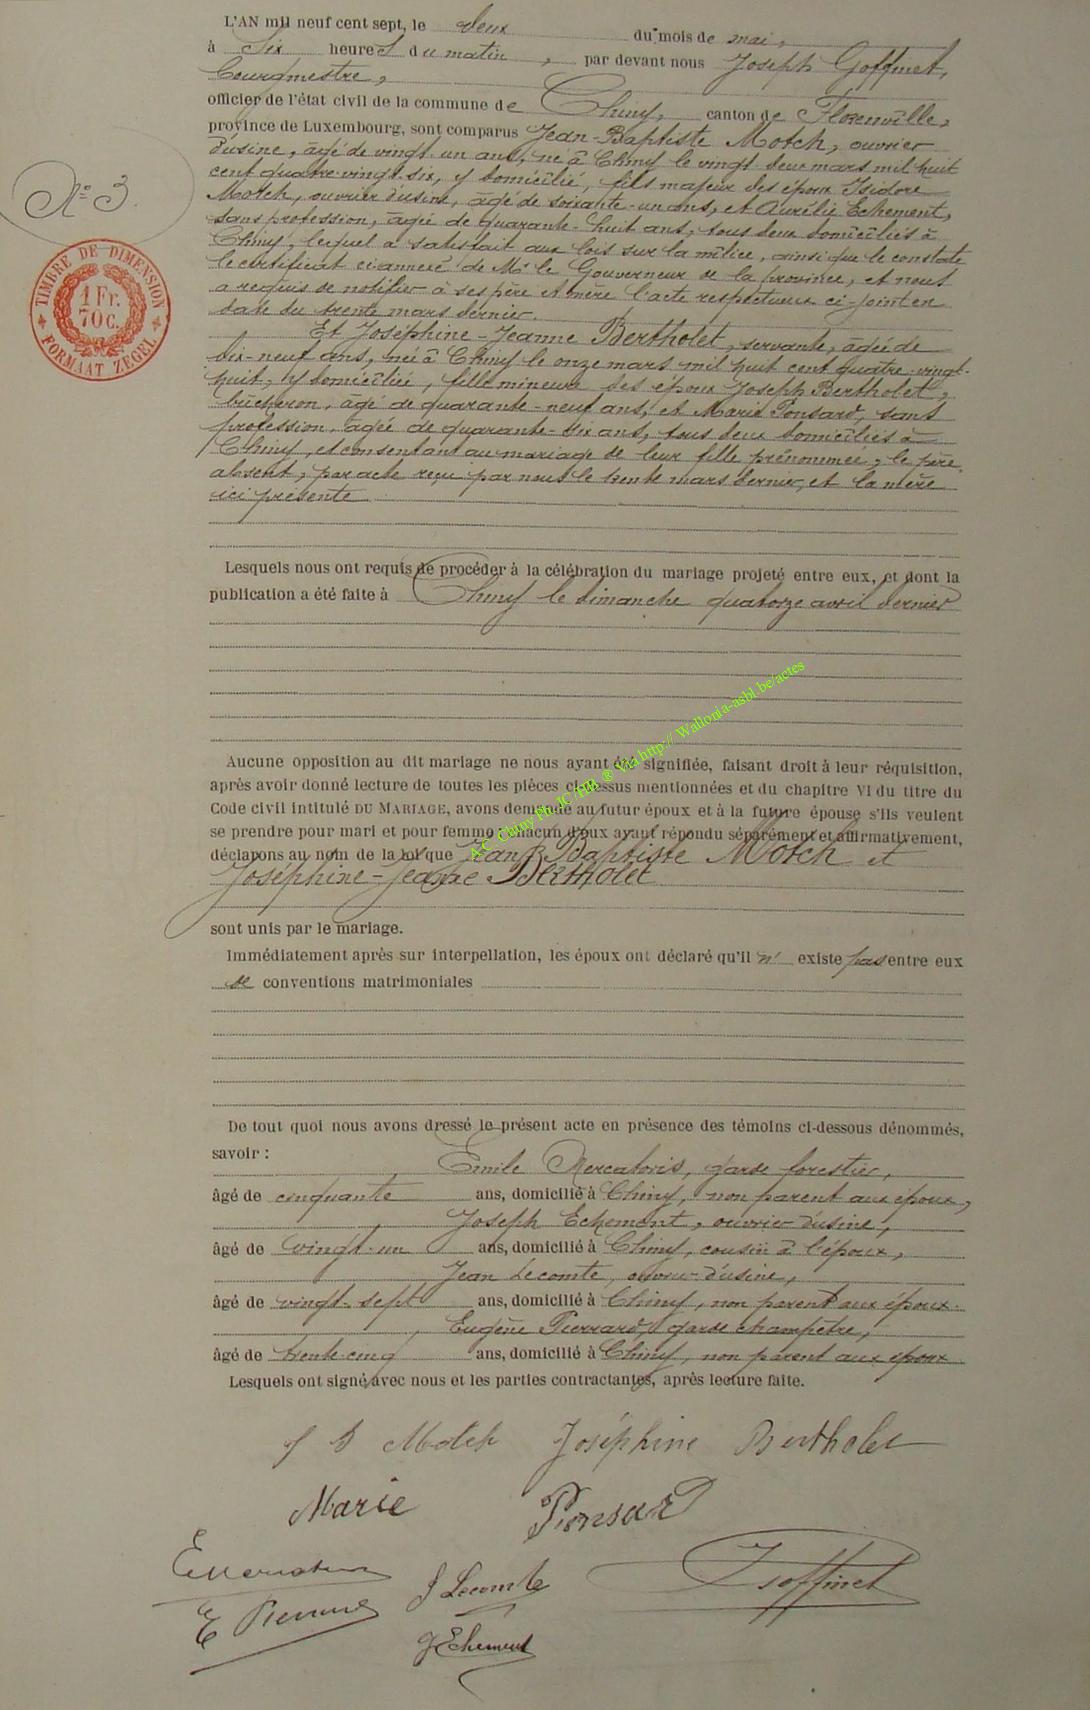 L'AN mil neuf cent sept, le deux du mois de mai,
à six heures du matin, par devant nous Joseph Goffinet,
Bourgmestre,
officier de l'état civil de la commune de Chiny, canton de Florenville,
province de Luxembourg, sont comparus Jean-Baptiste Motch, ouvrier
d'usine, âgé de vingt-un ans, né à Chiny le vingt deux mars mil huit
cent quatre-vingt-six, y domicilié, fils majeur des époux Isidore
Motch, ouvrier d'usine, âgé de soixante-un ans, et Aurélie Echement,
sans profession, âgée de quarante-huit ans, tous deux domiciliés à
Chiny, lequel a satisfait aux lois sur la milice, ainsi que le constate
le certificat ci-annexé de Mr le Gouverneur de la province, et nous
a requis de notifier à ses père et mère l'acte respectueux ci-joint en
date du trente mars dernier.
Et Joséphine-Jeanne Bertholet, servante, âgée de
dix-neuf ans, née à Chiny le onze mars mil huit cent quatre-vingt-
huit, y domiciliée, fille mineure des époux Joseph Bertholet,
bûcheron, âgé de quarante-neuf ans, et Marie Ponsard, sans
profession, âgée de quarante-six ans, tous deux domiciliés à
Chiny, et consentant au mariage de leur fille prénommée, le père
absent, par acte reçu par nous le trente mars dernier, et la mère
ici présente
N° 3.
TIMBRE DE DIMENSION
1 Fr.
70 c.
FORMAAT ZEGEL
Lesquels nous ont requis de procéder à la célébration du mariage projeté entre eux, et dont la
publication a été faite à Chiny le dimanche quatorze avril dernier
Aucune opposition au dit mariage ne nous ayant été signifiée, faisant droit à leur réquisition,
après avoir donné lecture de toutes les pièces ci-dessus mentionnées et du chapitre VI du titre du
Code civil intitulé DU MARIAGE, avons demandé au futur époux et à la future épouse s'ils veulent
se prendre pour mari et pour femme ; chacun d'eux ayant répondu séparément et affirmativement,
déclarons au nom de la loi que Jean-Baptiste Motch et
Joséphine-Jeanne Bertholet
sont unis par le mariage.
Immédiatement après sur interpellation, les époux ont déclaré qu'il n' existe pas entre eux
de conventions matrimoniales
De tout quoi nous avons dressé le présent acte en présence des témoins ci-dessous dénommés,
savoir :
Emile Mercatoris, garde forestier,
âgé de cinquante ans, domicilié à Chiny, non parent aux époux,
Joseph Echement, ouvrier d'usine,
âgé de vingt-un ans, domicilié à Chiny, cousin à l'époux,
Jean Lecomte, ouvrier d'usine,
âgé de vingt-sept ans, domicilié à Chiny, non parent aux époux.
Eugène Pierrard, garde champêtre,
âgé de trente-cinq ans, domicilié à Chiny, non parent aux époux
Lesquels ont signé avec nous et les parties contractantes, après lecture faite.
J B Motch Joséphine Bertholet
Marie Ponsard
E Mercatoris
J Lecomte
J Goffinet
E Pierrard
J Echement
A.C. Chiny Ph. JC /HB ® Via http:// Wallonia-asbl.be/actes